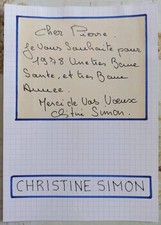 Cher Pierre.
Je Vous Souhaite pour
1978 Une très Bonne
Santé, et très Bonne
Année.
Merci de Vos Voeux
Simon.
CHRISTINE SIMON